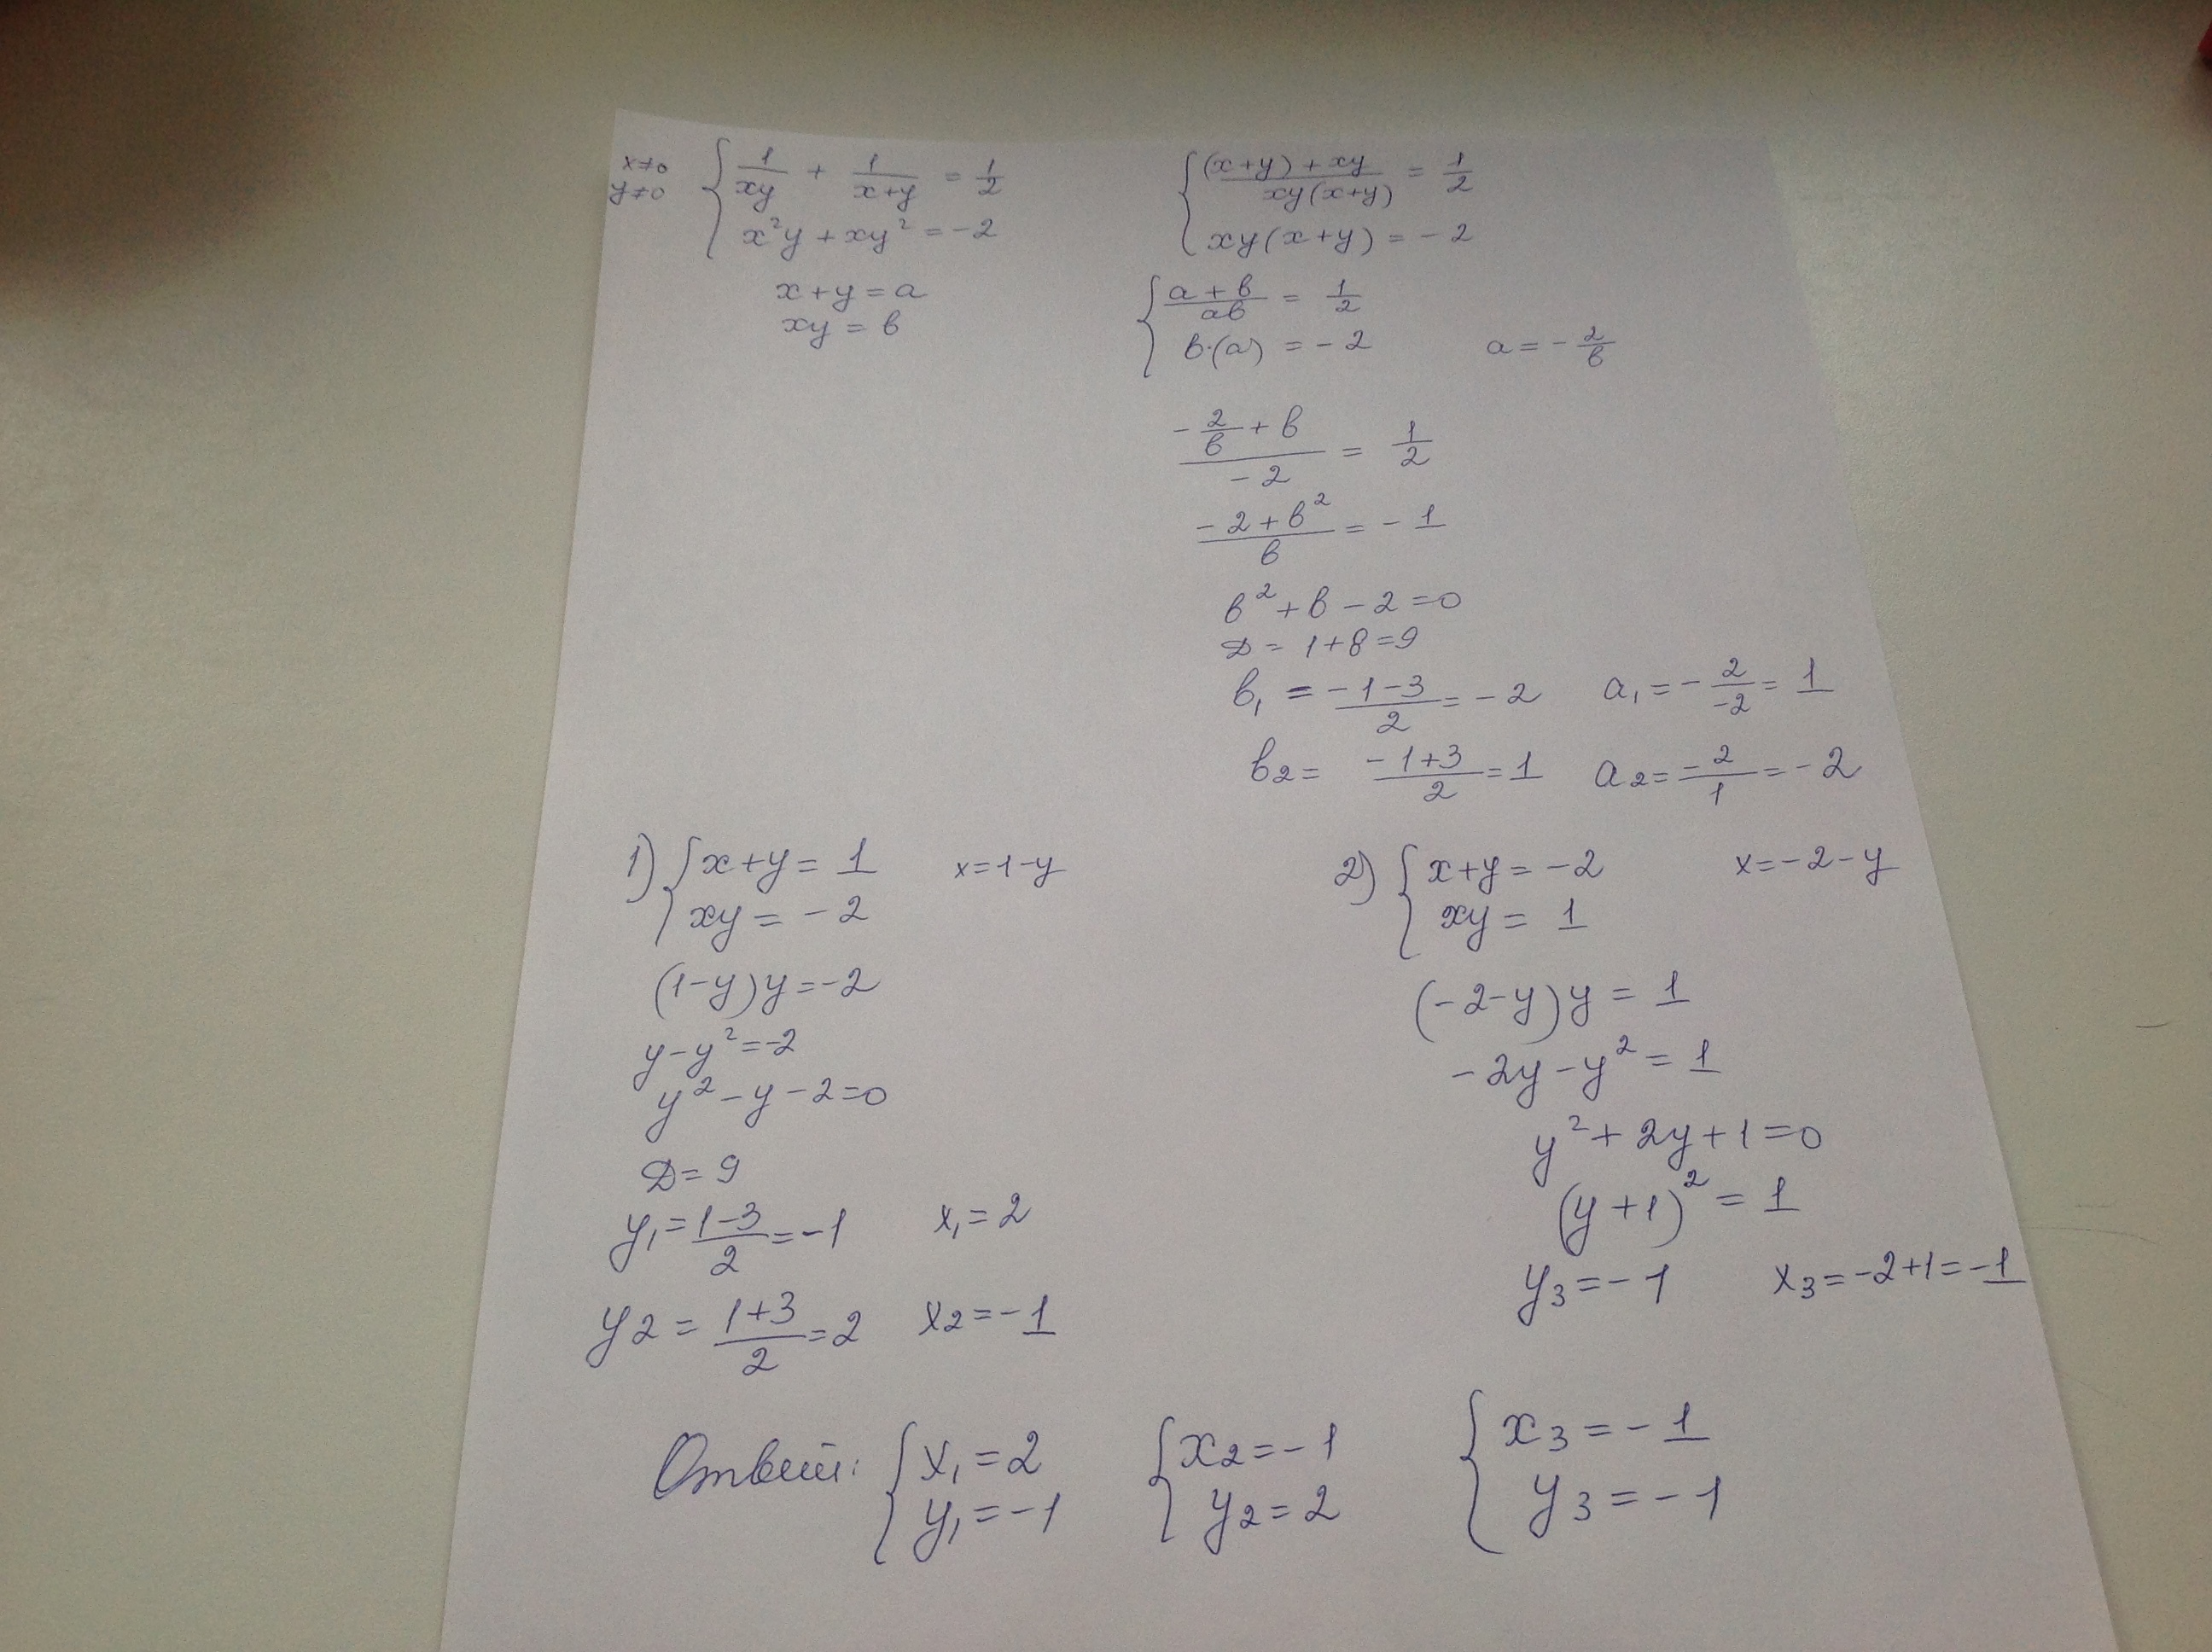 x≠0
y≠0
{ 1/xy + 1/(x+y) = 1/2
x²y + xy² = -2
{ ((x+y)+xy)/(xy(x+y)) = 1/2
xy(x+y) = -2
x+y = a
xy = b
{ (a+b)/(ab) = 1/2
b·(a) = -2
a = -2/b
(-2/b + b)/(-2) = 1/2
(-2+b²)/b = -1
b² + b - 2 = 0
D = 1+8 = 9
b₁ = (-1-3)/2 = -2 a₁ = -2/-2 = 1
b₂ = (-1+3)/2 = 1 a₂ = -2/1 = -2
1) { x+y = 1 x = 1-y
xy = -2
(1-y)y = -2
y-y² = -2
y² - y - 2 = 0
D = 9
y₁ = (1-3)/2 = -1 x₁ = 2
y₂ = (1+3)/2 = 2 x₂ = -1
2) { x+y = -2 x = -2-y
xy = 1
(-2-y)y = 1
-2y - y² = 1
y² + 2y + 1 = 0
(y+1)² = 1
y₃ = -1 x₃ = -2+1 = -1
Ответ: { x₁ = 2 { x₂ = -1 { x₃ = -1
y₁ = -1 y₂ = 2 y₃ = -1